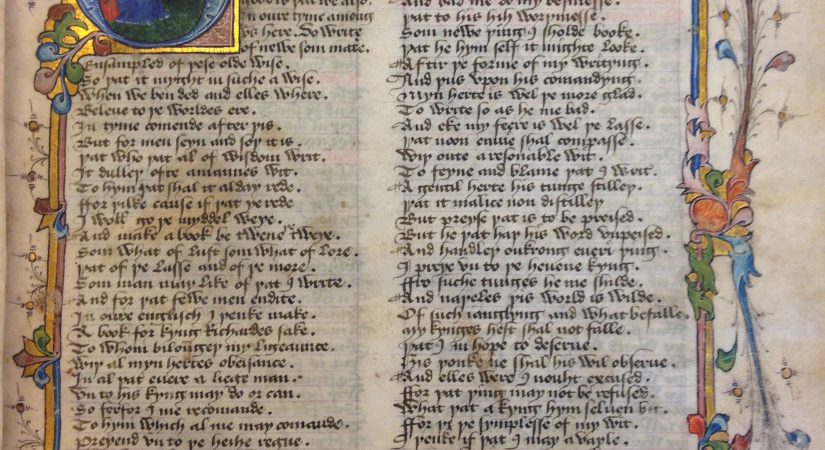 is þat we also
In oure tyme among
vs here. Do write
of newe som mate.
Ensampled of þese olde wise.
So þat it myght in suche a wise.
When we ben ded and elles where.
Beleue to þe worldes ere.
In tyme comende after þis.
But for men seyn and soþ it is.
Þat who þat al of wisdom writ.
It dulleþ ofte a mannes wit.
To hym þat shal it alday rede.
ffor þilke cause if þat ȝe rede
I woll go þe myddel weye.
And make a book be twene þe tweye.
Som what of lust som what of lore.
Þat of þe lasse and of þe more.
Som man may like of þat I write.
And for þat fewe men endite.
In oure englisch I þenke make.
A book for kyng Richardes sake.
To whom bilongeþ my ligeaunce.
Wiþ al myn hertes obeisance.
In al þat euere a liege man.
Vn to his kyng may do or can.
So feerfor I me recomande.
To hym which al me may comaunde.
Preyend vn to þe heihe regne.
And bad me do my besinesse.
Þat to his hih worþinesse.
Som newe þing I sholde booke.
Þat he hym self it mighte looke.
Aftir þe forme of my writyng.
And þus vpon his comandyng.
Myn herte is wel þe more glad.
To write so as he me bad.
And eke my feere is wel þe lasse.
Þat noon enuie shal compasse.
Wiþ oute a resonable wit.
To feyne and blame þat I writ.
A gentil herte his tunge stilleþ.
Þat it malice non distilleþ
But preyse þat is to be preised.
But he þat haþ his word vnpeised.
And handleþ onkrong eueri þing.
I preye vn to þe heuene kyng.
ffro suche tunges he me shilde.
And naþeles þis world is wilde.
Of such ianglyng and what befalle.
my kynges hest shal not falle.
Þat I in hope to deserue.
His þonke ne shal his wil obserue.
And elles were I nouht excused.
ffor þat þing may not be refused.
What þat a kyng hym seluen bit.
ffor þi þe symplesse of my wit.
I þenke if þat I may a vayle.